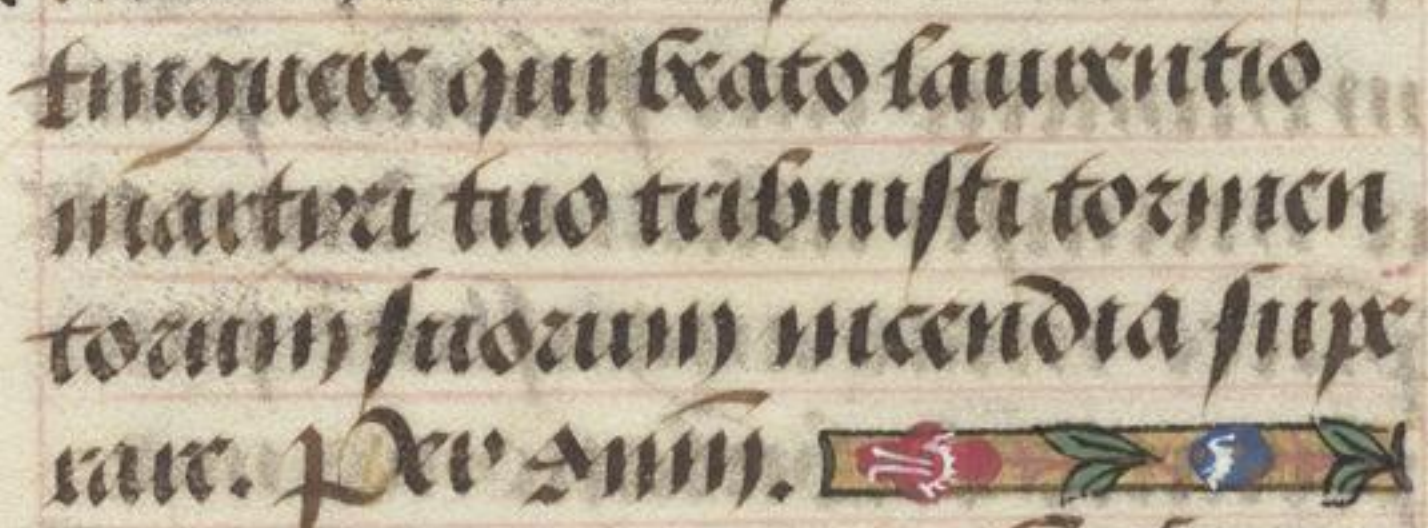 tinguere qui beato laurentio
martyri tuo tribuisti tormen
torum suorum incendia supe
rare. Per